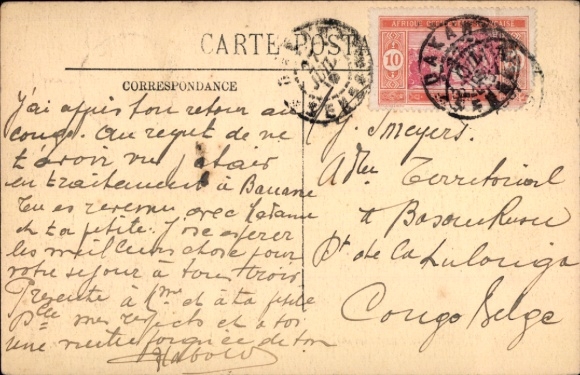 CARTE POSTA
CORRESPONDANCE
AFRIQUE OCCIDENTALE FRANÇAISE
10
DAKAR
J'ai appris ton retour au
Congo. Au regret de ne
t'avoir vu j'étais
en traitement à Banane
Tu es revenu avec Madame
et ta petite. J'ose espérer
les meilleures chose pour
votre séjour à tous trois
Présente à Mme et à ta petite
mes respects et à toi
une poignée de ton
J. Smeyers.
Adm Territorial
à Basankusu
Dt de la Lulonga
Congo Belge